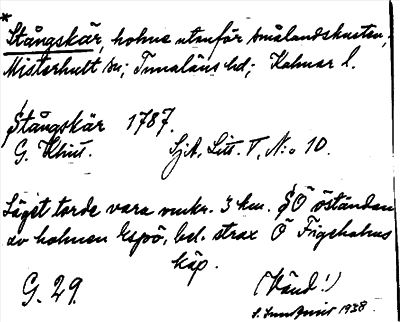 * Stångskär, holme utanför Smålandskusten,
Misterhult sn; Tunaläns hd; Kalmar l.
Stångskär 1787.
G. Klint. Sjk. Litt. T, N:o 10.
Läget torde vara omkr. 3 km. SÖ öständan
av holmen Espö, bel. strax Ö Figeholms
kåp.
G. 29. (Vänd!)
1938